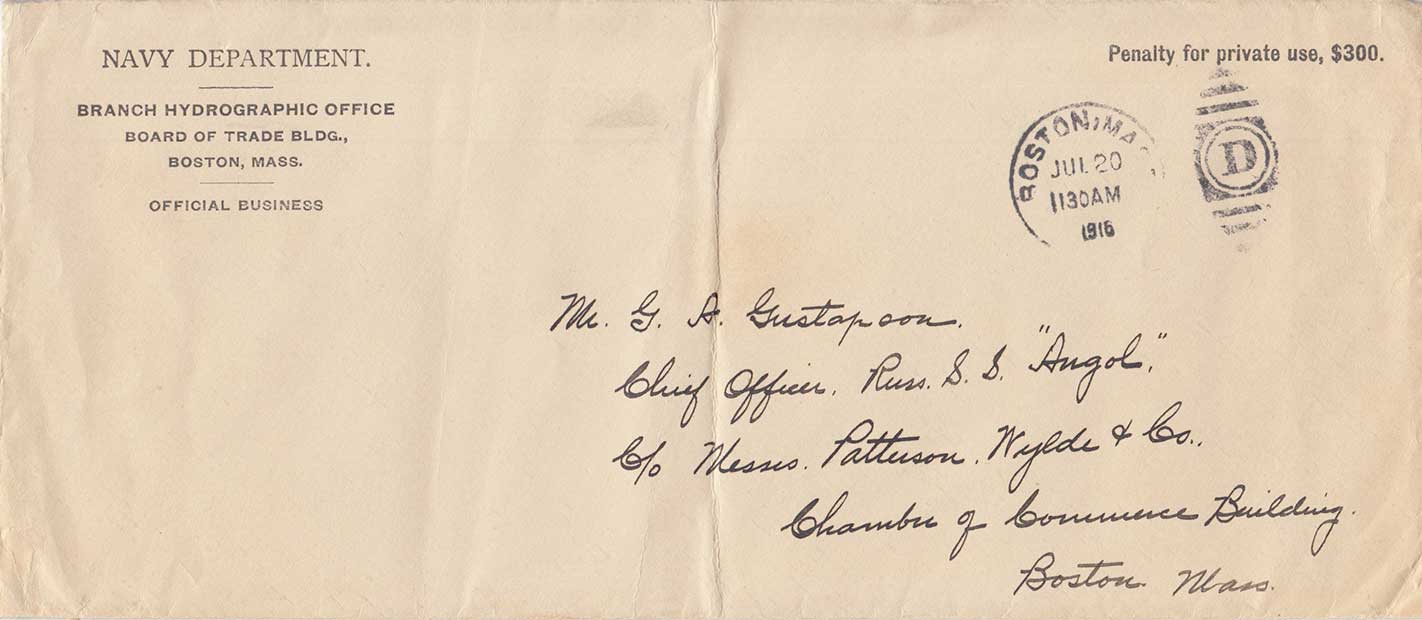 NAVY DEPARTMENT.
BRANCH HYDROGRAPHIC OFFICE
BOARD OF TRADE BLDG.,
BOSTON, MASS.
OFFICIAL BUSINESS
Penalty for private use, $300.
BOSTON, MA
JUL 20
1130AM
1916
D
Mr. G. A. Gustapson.
Chief Officer. Russ. S. S. "Angol."
C/o Messrs. Patterson, Wylde & Co.,
Chamber of Commerce Building.
Boston. Mass.